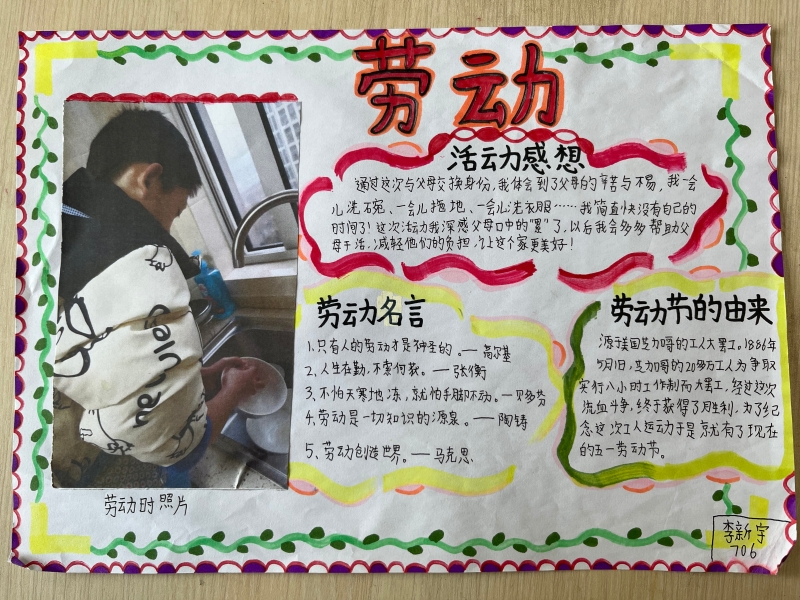 劳动
活动感想
通过这次与父母交换身份,我体会到了父母的辛苦与不易,我一会
儿洗碗、一会儿拖地、一会儿洗衣服……我简直快没有自己的
时间了!这次活动我深感父母口中的“累”了,以后我会多多帮助父
母干活,减轻他们的负担,让这个家更美好!
劳动名言
1.只有人的劳动才是神圣的。——高尔基
2.人生在勤,不索何获。——张衡
3.不怕天寒地冻,就怕手脚不动。——贝多芬
4.劳动是一切知识的源泉。——陶铸
5、劳动创造世界。——马克思
劳动节的由来
源于美国芝加哥的工人大罢工。1886年
5月1日,芝加哥的20多万工人为争取
实行八小时工作制而大罢工,经过这次
流血斗争,终于获得了胜利。为了纪
念这次工人运动于是就有了现在
的五一劳动节。
劳动时照片
李新宇
706